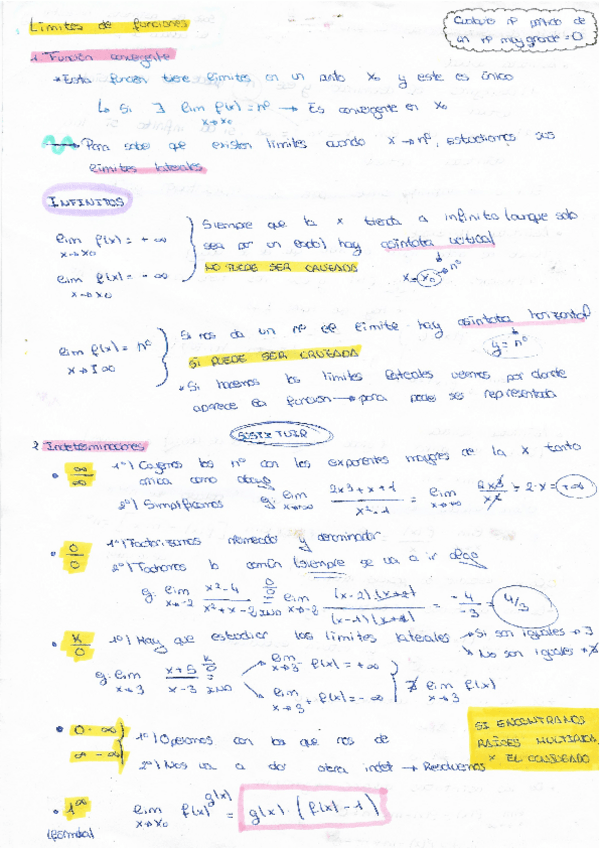 Límites de funciones
Cualquier nº partido de
un nº muy grande = 0
1. Función convergente
* Esta función tiene límites en un punto x₀ y este es único
↳ Si ∃ lim f(x) = nº → Es convergente en x₀
x→x₀
Para saber que existen límites cuando x→nº, estudiamos sus
límites laterales
INFINITOS
lim f(x) = +∞
x→x₀
lim f(x) = -∞
x→x₀
Siempre que la x tienda a infinito (aunque solo
sea por un lado) hay asíntota vertical
NO PUEDE SER CRUZADA
x = x₀ → nº
lim f(x) = nº
x→±∞
Si nos da un nº el límite hay asíntota horizontal
SI PUEDE SER CRUZADA
y = nº
* Si hacemos los límites laterales vemos por donde
aparece la función → para poder ser representada
SUSTITUIR
2. Indeterminaciones
• ∞/∞ 1º) Cogemos los nº con los exponentes mayores de la x tanto
arriba como abajo
2º) Simplificamos
• 0/0 1º) Factorizamos numerador y denominador
2º) Tachamos lo común (siempre se va a ir algo)
ej: lim x²-4 / x²+x-2 = 0/0 IND = lim (x-2)(x+2) / (x-1)(x+2) = -4/-3 = 4/3
x→-2
• K/0 1º) Hay que estudiar los límites laterales → Si son iguales → ∃
↘ No son iguales → ∄
ej: lim x+5 / x-3 = K/0 IND
x→3
lim f(x) = +∞
x→3⁻
lim f(x) = -∞
x→3⁺
∄ lim f(x)
x→3
• 0·∞
∞-∞
1º) Operamos con lo que nos de
2º) Nos va a dar otra indet → Resolvemos
SI ENCONTRAMOS
RAÍCES MULTIPLICA
x EL CONJUGADO
• 1^∞ lim f(x)^g(x) = g(x)·(f(x)-1)
x→x₀
(fórmula)